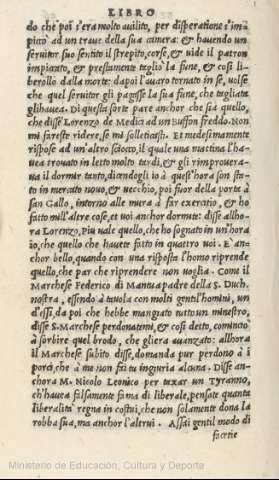 LIBRO
do che poi s'era molto avilito, per disperatione s'im
piccò ad un trave della sua camera: & havendo un
servitor suo sentito il strepito, corse, & vide il patron
impiccato, & prestamente tagliò la fune, & così li-
berollo dalla morte: dapoi l'avaro tornato in se, volse
che quel servitor gli pagasse la sua fune, che tagliata
gli havea. Di questa sorte pare anchor che sia quello,
che disse Lorenzo de Medici ad un Buffon freddo. Non
mi fareste ridere, se mi solleticasti. Et medesimamente
rispose ad un'altro sciocco, il quale una mattina l'ha-
vea trovato in letto molto tardi, & gli rimprovera-
va il dormir tanto, dicendogli io à quest'hora son sta-
to in mercato novo, & vecchio, poi fuor della porta à
san Gallo, intorno alle mura à far exercitio, & ho
fatto mill'altre cose, et voi anchor dormite: disse allho-
ra Lorenzo, Piu vale quello, che ho sognato in un'hora
io, che quello che havete fatto in quattro voi. E an-
chor bello, quando con una risposta l'homo riprende
quello, che par che riprendere non voglia. Come il
Marchese Federico di Mantua padre della S. Duch.
nostra, essendo à tavola con molti gentil'homini, un
d'essi, da poi che hebbe mangiato tutto un minestro,
disse S. Marchese perdonatemi, & così detto, cominciò
à sorbire quel brodo, che gli era avanzato: allhora
il Marchese subito disse, domanda pur perdono à i
porci, che à me non fai tu ingiuria alcuna. Disse an-
chora M. Nicolo Leonico per taxar un Tyranno,
c'havea falsamente fama di liberale, pensate quanta
liberalità regna in costui, che non solamente dona la
robba sua, ma anchor l'altrui. Assai gentil modo di
facetie
Ministerio de Educación, Cultura y Deporte